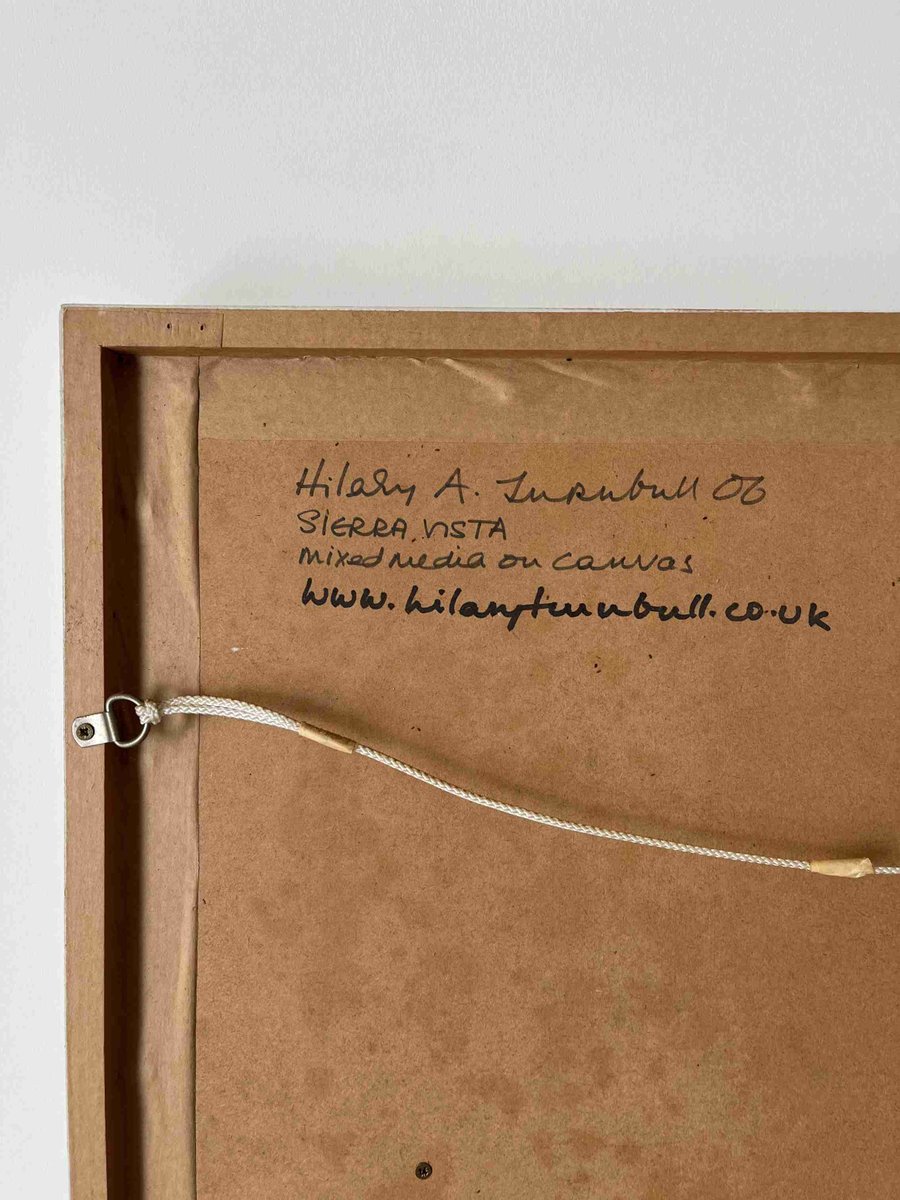 Hilary A. Turnbull 06
SIERRA VISTA
mixed media on canvas
www.hilaryturnbull.co.uk